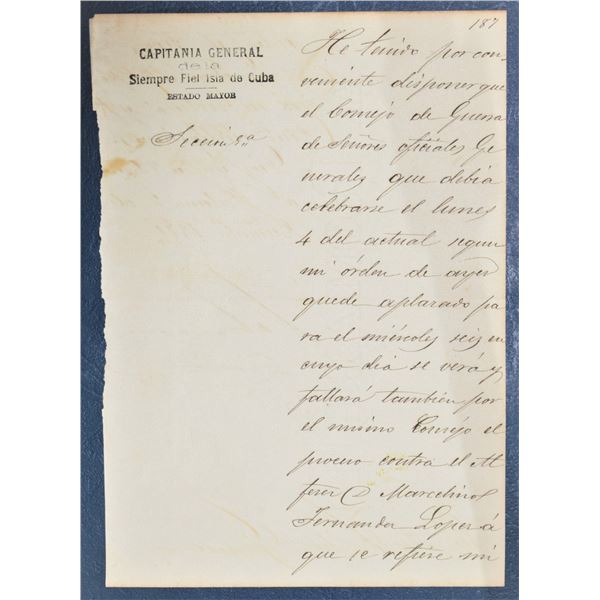 187
CAPITANIA GENERAL
de la
Siempre Fiel Isla de Cuba
ESTADO MAYOR
Seccion 5ª
He tenido por con-
veniente disponer que
el Consejo de Guerra
de Señores oficiales Ge
nerales que debia
celebrarse el lunes
4 del actual segun
mi órden de ayer
quede aplazado pa
ra el miércoles seis en
cuyo dia se verá y
fallará tambien por
el mismo Consejo el
proceso contra el Al
ferez D Marcelino
Fernandez Lopez á
que se refiere mi